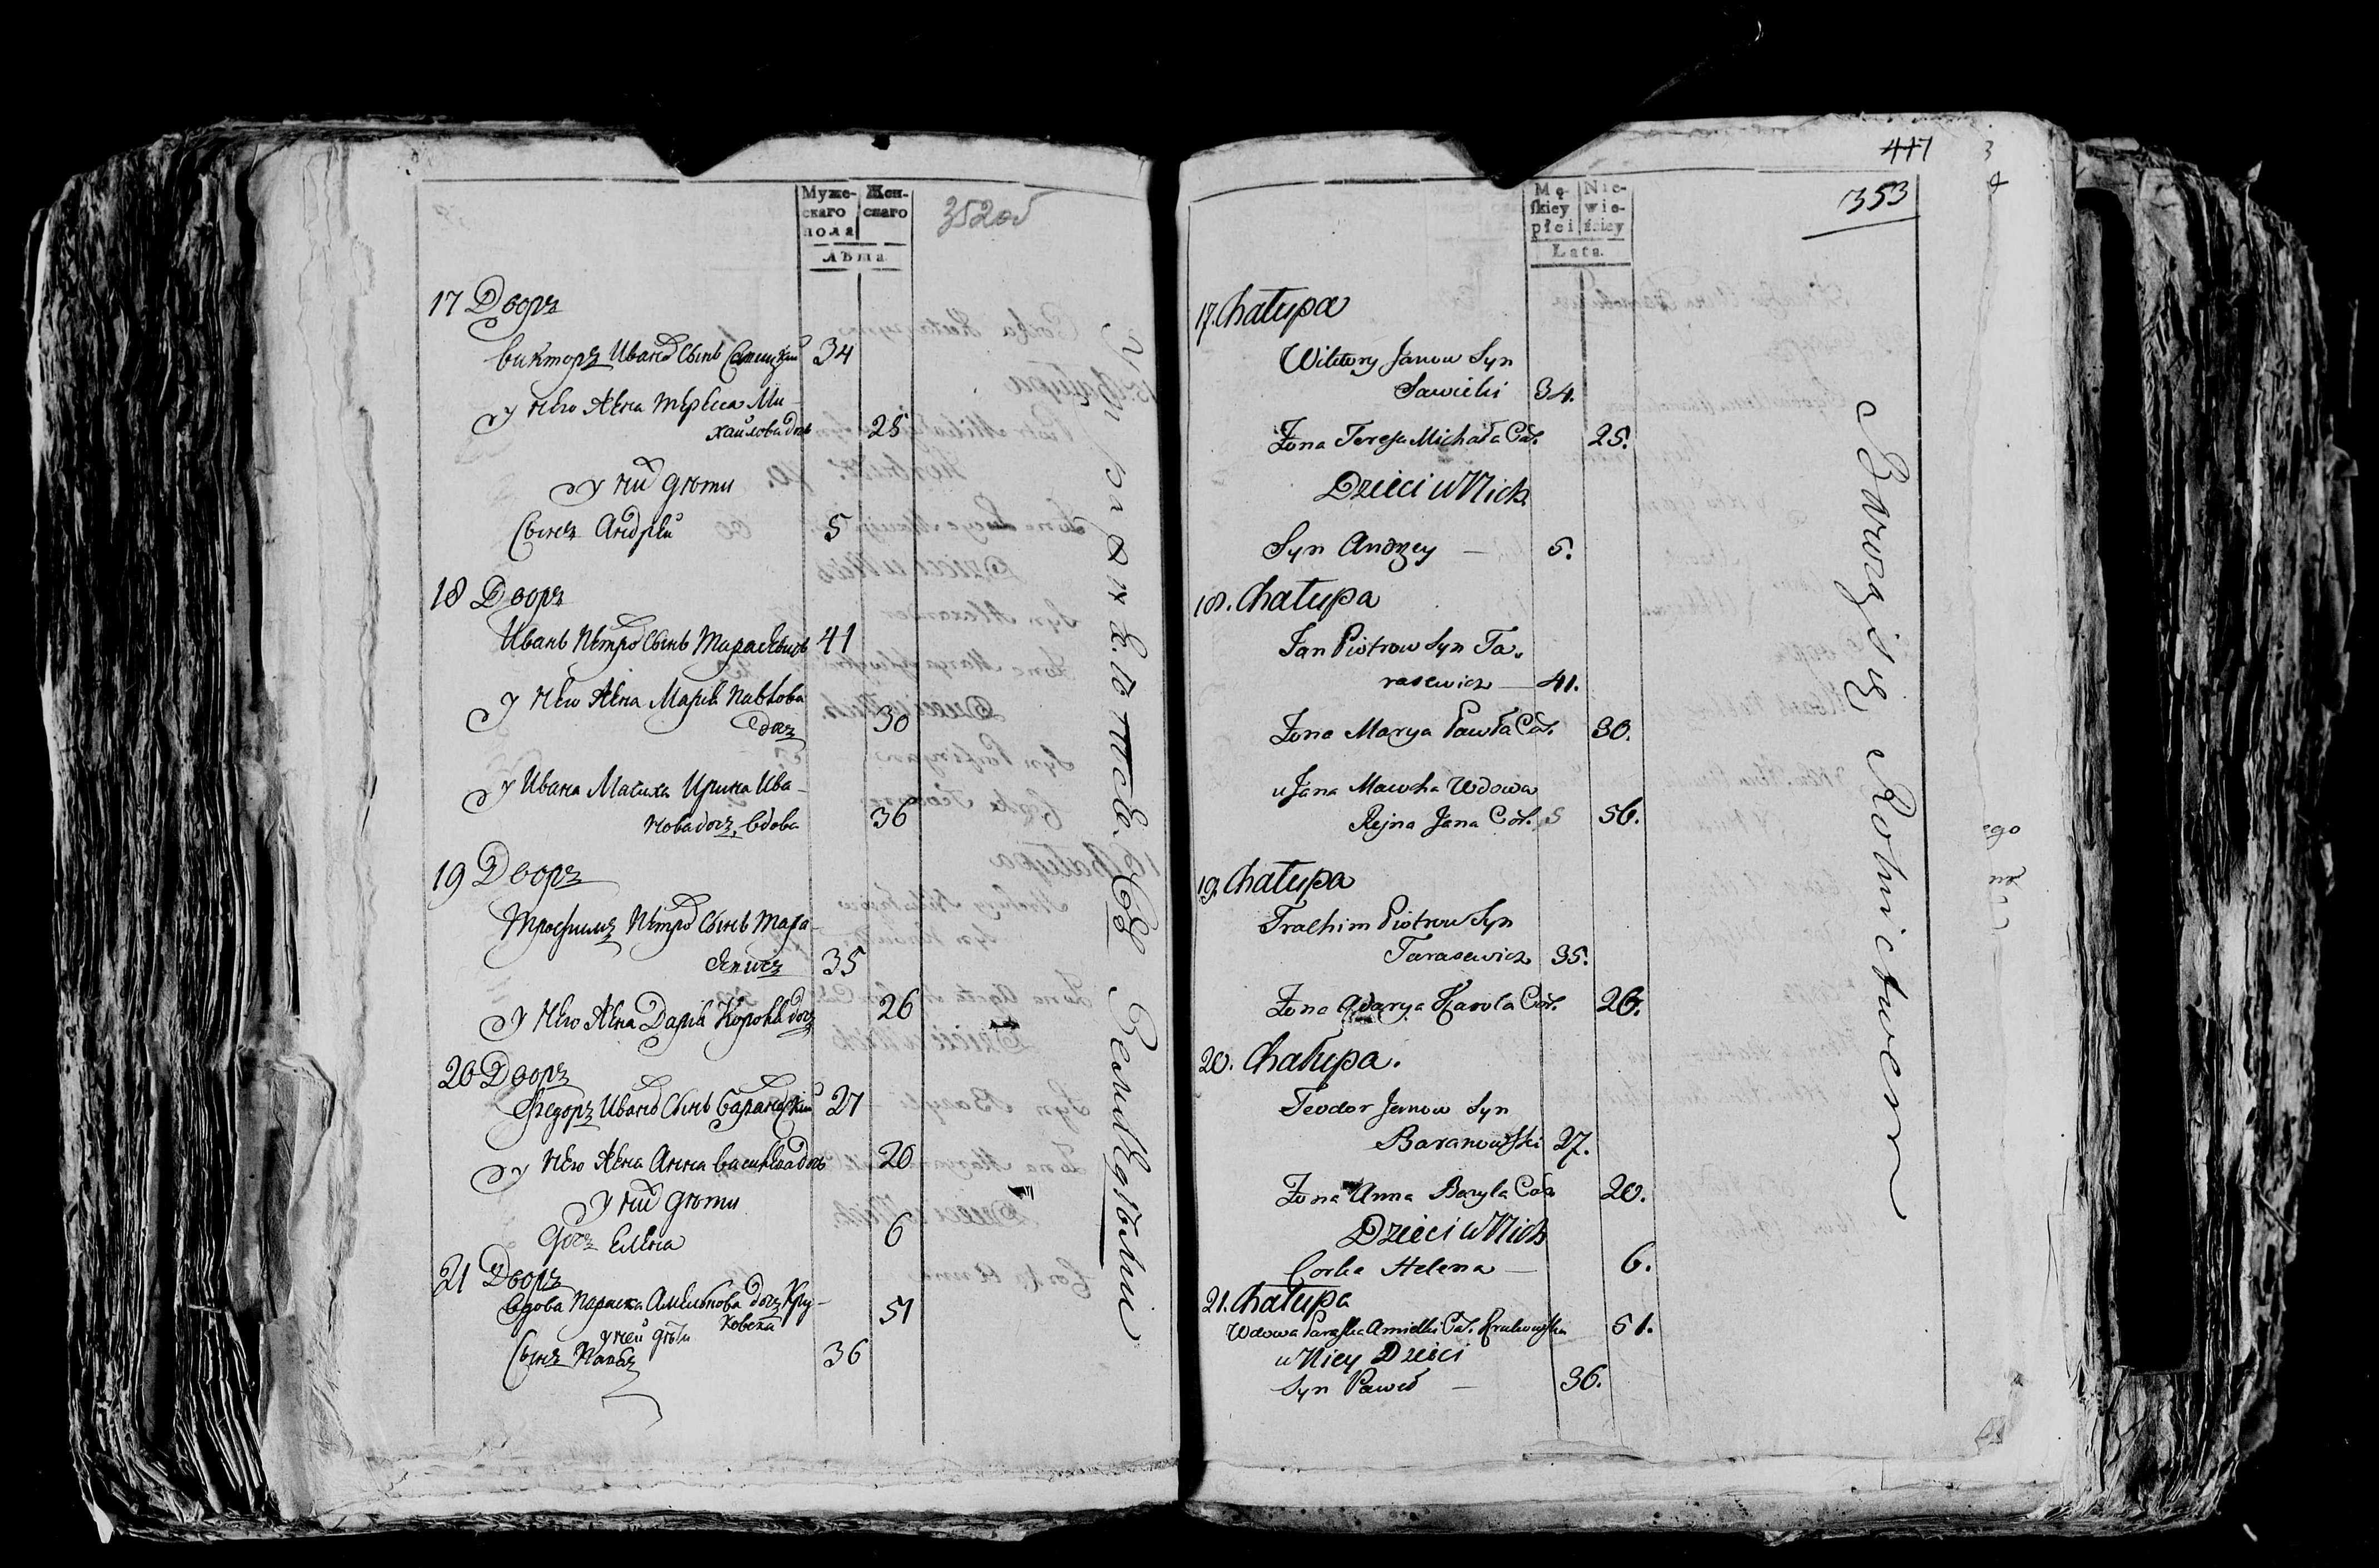 Муже-
скаго
пола
Жен-
скаго
Лѣта
352об
17 Дворъ
Викторъ Ивановъ Сынъ Савицкій 34
у него жена Тереса Ми-
хайлова дочь 25
у них дѣти
Сынъ Андрей 5
18 Дворъ
Иванъ Петровъ Сынъ Тарасевичъ 41
у него жена Марья Павлова
дочь 30
у Ивана Мачиха Ирина Ива-
нова дочь, вдова 36
19 Дворъ
Трофимъ Петровъ Сынъ Тара-
севичъ 35
у него жена Дарья Королева дочь 26
20 Дворъ
Федоръ Ивановъ Сынъ Барановскій 27
у него жена Анна Васильева дочь 20
у них дѣти
дочь Елена 6
21 Дворъ
вдова Параска Амельянова дочь Кру-
ковска 51
у ней дѣти
Сынъ Павелъ 36
Земледѣльи
447
353
Mę-
skiey
płci
Nie-
wie-
ściey
Lata.
17. Chałupa
Wiktory Janow Syn
Sawicki 34.
Żona Teresa Michała Cór. 25.
Dzieci u Nich
Syn Andrzey — 5.
18. Chałupa
Jan Piotrow Syn Ta-
rasewicz — 41.
Żona Marya Pawła Cór. 30.
u Jana Macocha Wdowa
Rejna Jana Cór. 56.
19. Chałupa
Trachim Piotrow Syn
Tarasewicz 35.
Żona Adarya Karola Cór. 26.
20. Chałupa.
Teodor Janow Syn
Baranowski 27.
Żona Anna Bazyla Cór. 20.
Dzieci u Nich
Corka Helena — 6.
21. Chałupa
Wdowa Paraska Amielki Cór. Krukowska 51.
u Niey Dzieci
Syn Paweł — 36.
Rolnictwem